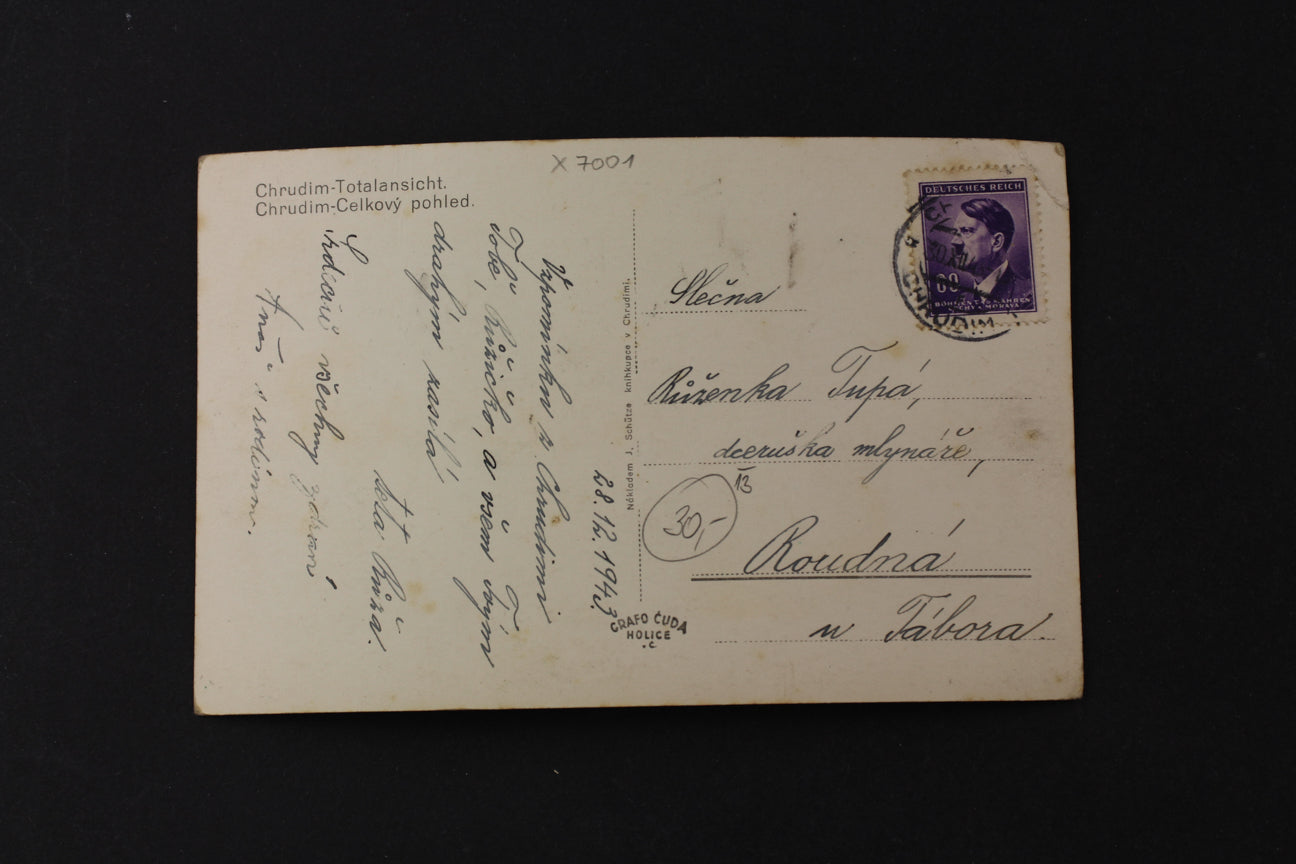 X 7001
Chrudim-Totalansicht.
Chrudim-Celkový pohled.
28.12.1943.
Vzpomínku z Chrudimi
Tobě, Růžičko, a všem Tvým
drahým zasílá
teta Růža.
Srdečně všechny zdraví
s rodinou.
Nákladem J. Schütze knihkupce v Chrudimi.
GRAFO ČUDA
HOLICE
DEUTSCHES REICH
60
CHRUDIM
Slečna
Růženka Tupá,
dceruška mlynáře,
13
30,-
Roudná
u Tábora.